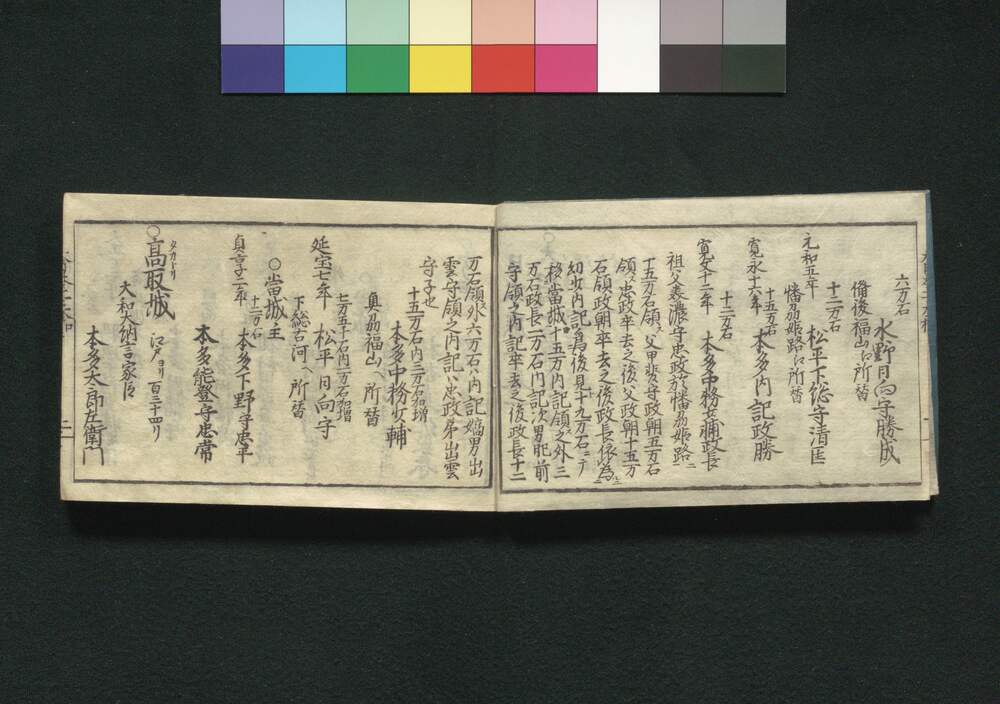 六万石
水野日向守勝成
備後福山江所替
十二万石
元和五年
松平下総守清匡
播刕姫路江所替
十五万石
寛永十六年
本多内記政勝
十二万石
寛文十二年
本多中務少輔政長
祖父美濃守忠政於播刕姫路ニ
十五万石領ス父甲斐守政朝五万石
領ス忠政卒去之後父政朝十五万
石領政朝卒去之後政長依為
幼少内記為後見十九万石ニテ
移當城十五万内記領之外三
万石政長二万石内記次男肥前
守領之内記卒去之後政長十二
万石領外六万石ハ内記嫡男出
雲守領之内記ハ忠政弟出雲
守子也
十五万石内三万石加増
本多中務少輔
奥刕福山ヘ所替
延宝七年
七万五千石内一万石加増
松平日向守
下総古河ヘ所替
○當城主
十二万石
貞享二年
本多下野守忠平
本多能登守忠常
○高取城
タカトリ
江戸ヨリ百三十四リ
大和大納言家臣
本多太郎左衛門